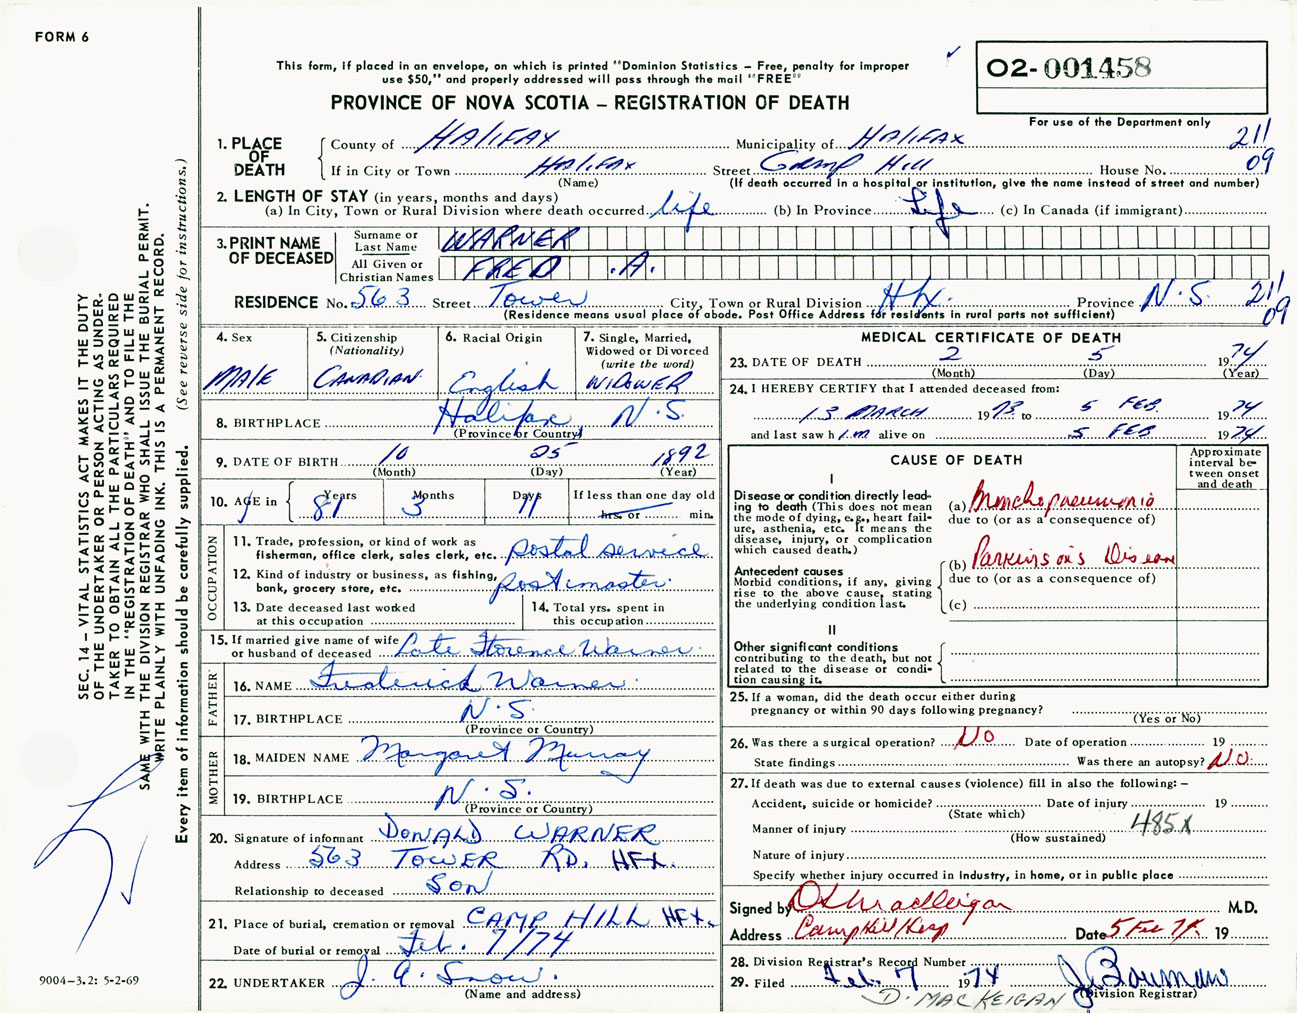 FORM 6
This form, if placed in an envelope, on which is printed "Dominion Statistics – Free, penalty for improper
use $50," and properly addressed will pass through the mail "FREE"
PROVINCE OF NOVA SCOTIA – REGISTRATION OF DEATH
O2-001458
For use of the Department only
1. PLACE OF DEATH
County of HALIFAX Municipality of HALIFAX 211
If in City or Town HALIFAX Street Camp Hill House No. 09
(Name) (If death occurred in a hospital or institution, give the name instead of street and number)
2. LENGTH OF STAY (in years, months and days)
(a) In City, Town or Rural Division where death occurred life (b) In Province Life (c) In Canada (if immigrant)
3. PRINT NAME OF DECEASED
Surname or Last Name WARNER
All Given or Christian Names FRED .A.
RESIDENCE No. 563 Street Tower City, Town or Rural Division Hfx. Province N.S. 211
(Residence means usual place of abode. Post Office Address for residents in rural parts not sufficient) 09
4. Sex
MALE
5. Citizenship
(Nationality)
CANADIAN
6. Racial Origin
English
7. Single, Married,
Widowed or Divorced
(write the word)
WIDOWER
8. BIRTHPLACE Halifax N.S.
(Province or Country)
9. DATE OF BIRTH 10 25 1892
(Month) (Day) (Year)
10. AGE in Years Months Days If less than one day old
81 3 11 hrs. or min.
OCCUPATION
11. Trade, profession, or kind of work as
fisherman, office clerk, sales clerk, etc. postal service
12. Kind of industry or business, as fishing,
bank, grocery store, etc. postmaster
13. Date deceased last worked
at this occupation
14. Total yrs. spent in
this occupation
15. If married give name of wife
or husband of deceased Late Florence Warner
FATHER
16. NAME Frederick Warner
17. BIRTHPLACE N.S.
(Province or Country)
MOTHER
18. MAIDEN NAME Margaret Murray
19. BIRTHPLACE N.S.
(Province or Country)
20. Signature of informant DONALD WARNER
Address 563 TOWER RD. HFX.
Relationship to deceased SON
21. Place of burial, cremation or removal CAMP HILL HFX.
Date of burial or removal Feb. 7/74
22. UNDERTAKER J. A. Snow.
(Name and address)
MEDICAL CERTIFICATE OF DEATH
23. DATE OF DEATH 2 5 1974
(Month) (Day) (Year)
24. I HEREBY CERTIFY that I attended deceased from:
13 MARCH 1973 to 5 FEB. 1974
and last saw h im alive on 5 FEB 1974
CAUSE OF DEATH
Approximate
interval be-
tween onset
and death
I
Disease or condition directly lead-
ing to death (This does not mean
the mode of dying, e.g., heart fail-
ure, asthenia, etc. It means the
disease, injury, or complication
which caused death.)
(a) Bronchopneumonia
due to (or as a consequence of)
Antecedent causes
Morbid conditions, if any, giving
rise to the above cause, stating
the underlying condition last.
(b) Parkinson's Disease
due to (or as a consequence of)
(c)
II
Other significant conditions
contributing to the death, but not
related to the disease or condi-
tion causing it.
25. If a woman, did the death occur either during
pregnancy or within 90 days following pregnancy?
(Yes or No)
26. Was there a surgical operation? NO Date of operation 19
State findings Was there an autopsy? NO.
27. If death was due to external causes (violence) fill in also the following: –
Accident, suicide or homicide? Date of injury 19
(State which)
Manner of injury 485X
(How sustained)
Nature of injury
Specify whether injury occurred in industry, in home, or in public place
Signed by M.D.
Address Camp Hill Hosp Date 5 Feb 74. 19
28. Division Registrar's Record Number
29. Filed Feb. 7 1974
(Division Registrar)
D. MACKEIGAN
SEC. 14 – VITAL STATISTICS ACT MAKES IT THE DUTY
OF THE UNDERTAKER OR PERSON ACTING AS UNDER-
TAKER TO OBTAIN ALL THE PARTICULARS REQUIRED
IN THE "REGISTRATION OF DEATH" AND TO FILE THE
SAME WITH THE DIVISION REGISTRAR WHO SHALL ISSUE THE BURIAL PERMIT.
WRITE PLAINLY WITH UNFADING INK. THIS IS A PERMANENT RECORD.
Every item of information should be carefully supplied. (See reverse side for instructions.)
9004-3.2: 5-2-69